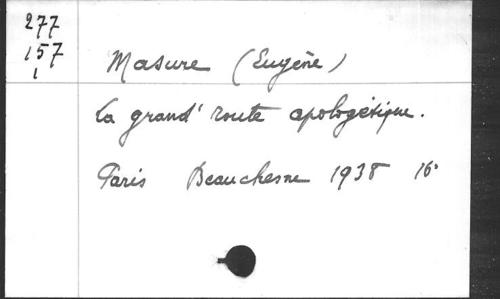 277
157
1
Masure (Eugène)
la grand' route apologétique.
Paris Beauchesne 1938 16°